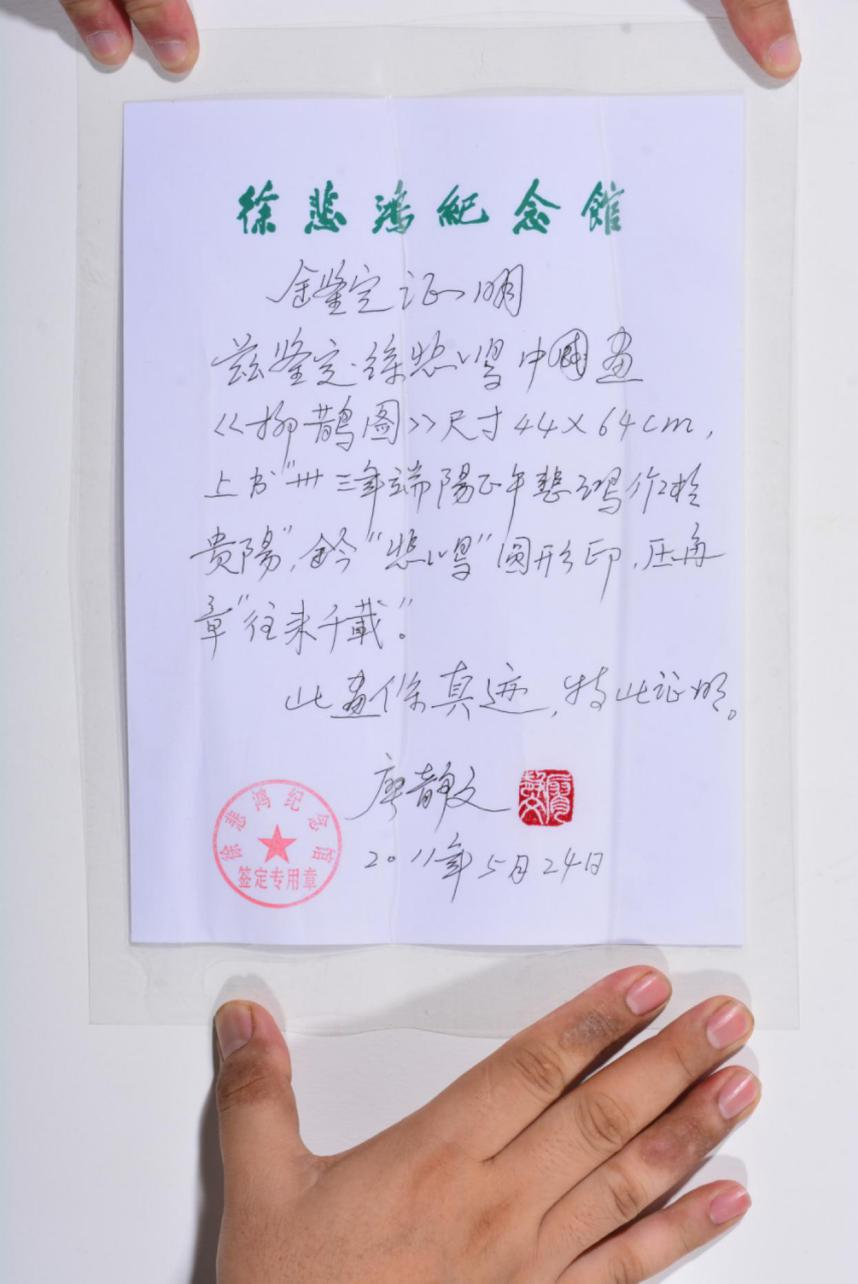 徐悲鸿紀念館
鉴定证明
兹鉴定:徐悲鸿中国画
《柳鹊图》尺寸44×64cm,
上书"卅三年端陽正午悲鸿作於
贵陽",钤"悲鸿"圆形印,压角
章"往来千載"。
此画係真迹,特此证明。
廖静文
2011年5月24日
徐悲鸿纪念馆
签定专用章